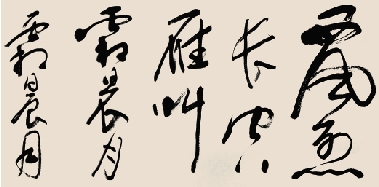 西风烈
长空
雁叫
霜晨月
霜晨月